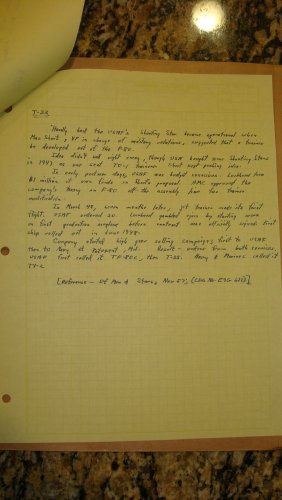 T-33
"Hardly had the USAF's Shooting Star become operational when
Mac Short, VP in charge of military relations, suggested that a trainer
be developed out of the F-80.
Idea didn't sell right away, though USN bought some Shooting Stars
in 1947 as jet trainers
In early postwar stage, USAF was budget conscious. Lockheed put
$1 million of own funds in Short's proposal. AMC approved the
company's taking an F-80 off the assembly line for trainer
modification.
In March 48, seven months later, jet trainer made its first
flight. USAF ordered 20. Lockheed gambled again by starting work
on first production airplane before contract was officially signed. First
ship rolled out in June 1948.
Company started high gear selling campaign, first to USAF
then to Navy at Patuxent, Md. Result - orders from both services.
USAF first called it TF-80C, then T-33. Navy & Marines called it
TV-2
[Reference - Of Men & Stars, Nov 57,